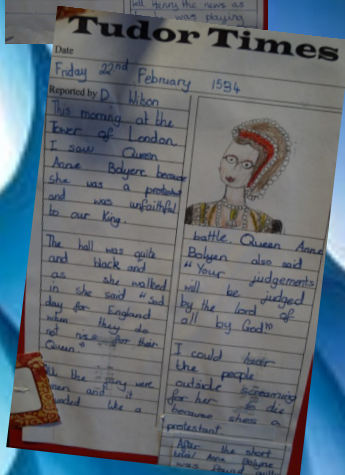 tell Henry the news as
was playing
Tudor Times
Date
Friday 22nd February 1534
Reported by D Wilson
This morning at the
Tower of London
I saw Queen
Anne Bolyere because
she was a protestant
and was unfaithful
to our King.
The hall was quite
and black and
as she walked
in she said "Sad
day for England
when they do
not rise for their
Queen"
All the were
men and it
sounded like a
battle. Queen Anne
Bolyen also said
"Your judgements
will be judged
by the lord of
all by God"
I could hear
the people
outside screaming
for her to die
because shes a
protestant
After the short
trial Anne Bolyne
was found guilty